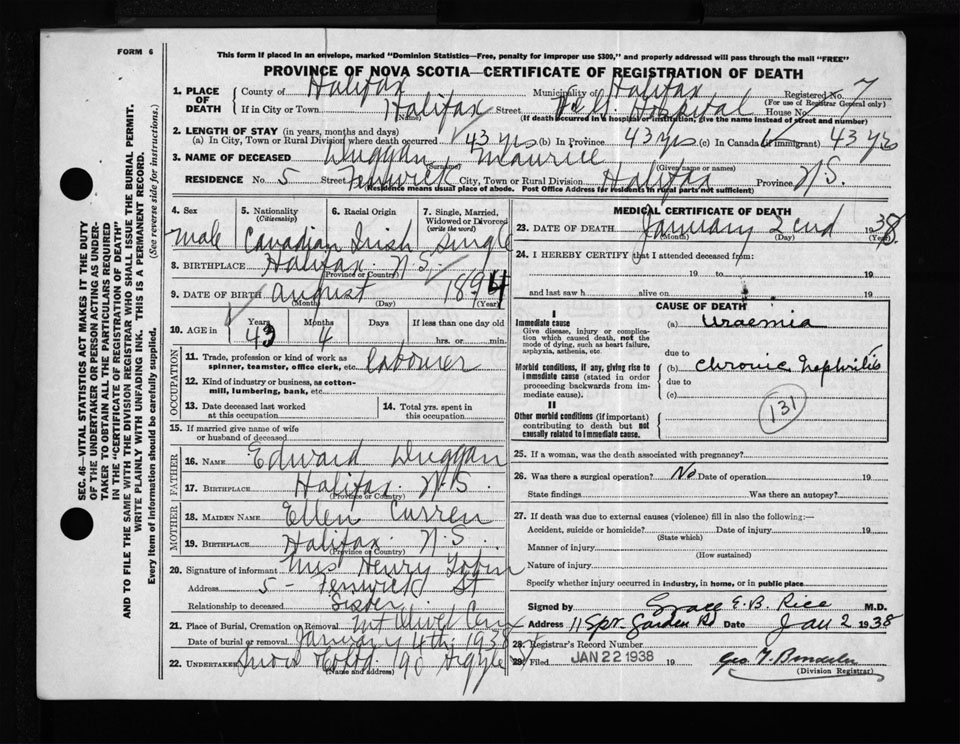 FORM 6
This form if placed in an envelope, marked "Dominion Statistics—Free, penalty for improper use $300," and properly addressed will pass through the mail "FREE"
PROVINCE OF NOVA SCOTIA—CERTIFICATE OF REGISTRATION OF DEATH
SEC. 46—VITAL STATISTICS ACT MAKES IT THE DUTY
OF THE UNDERTAKER OR PERSON ACTING AS UNDER-
TAKER TO OBTAIN ALL THE PARTICULARS REQUIRED
IN THE "CERTIFICATE OF REGISTRATION OF DEATH"
AND TO FILE THE SAME WITH THE DIVISION REGISTRAR WHO SHALL ISSUE THE BURIAL PERMIT.
WRITE PLAINLY WITH UNFADING INK. THIS IS A PERMANENT RECORD.
Every item of information should be carefully supplied. (See reverse side for instructions.)
1. PLACE OF DEATH County of Halifax Municipality of Halifax Registered No. 7
(For use of Registrar General only)
If in City or Town Halifax Street Hospital House No.
(Name) (If death occurred in a hospital or institution, give the name instead of street and number)
2. LENGTH OF STAY (in years, months and days)
(a) In City, Town or Rural Division where death occurred 43 yrs (b) In Province 43 yrs (c) In Canada (if immigrant) 43 yrs
3. NAME OF DECEASED Duggan Maurice
(Surname) (Given name or names)
RESIDENCE No. 5 Street Fenwick City, Town or Rural Division Halifax Province N.S.
(Residence means usual place of abode. Post Office Address for residents in rural parts not sufficient)
4. Sex 5. Nationality (Citizenship) 6. Racial Origin 7. Single, Married, Widowed or Divorced (write the word)
Male Canadian Irish Single
8. BIRTHPLACE Halifax N.S.
(Province or Country)
9. DATE OF BIRTH August 1894
(Month) (Day) (Year)
10. AGE in Years Months Days If less than one day old
43 4 hrs. or min.
OCCUPATION
11. Trade, profession or kind of work as spinner, teamster, office clerk, etc. Labourer
12. Kind of industry or business, as cotton-mill, lumbering, bank, etc.
13. Date deceased last worked at this occupation 14. Total yrs. spent in this occupation
15. If married give name of wife or husband of deceased
FATHER
16. NAME Edward Duggan
17. BIRTHPLACE Halifax N.S.
(Province or Country)
MOTHER
18. MAIDEN NAME Ellen Curren
19. BIRTHPLACE Halifax N.S.
(Province or Country)
20. Signature of informant Mrs Henry Tobin
Address 5 - Fenwick St
Relationship to deceased Sister
21. Place of Burial, Cremation or Removal Mt Olivet Cem
Date of burial or removal January 4th 1938
22. UNDERTAKER Snow 90 Argyle
(Name and address)
MEDICAL CERTIFICATE OF DEATH
23. DATE OF DEATH January 2nd 1938
(Month) (Day) (Year)
24. I HEREBY CERTIFY that I attended deceased from:
19 to 19
and last saw h alive on 19
CAUSE OF DEATH
I
Immediate cause
Give disease, injury or complication which caused death, not the mode of dying, such as heart failure, asphyxia, asthenia, etc.
(a) Uraemia
due to
Morbid conditions, if any, giving rise to immediate cause (stated in order proceeding backwards from immediate cause).
(b) Chronic Nephritis
due to
(c)
131
II
Other morbid conditions (if important) contributing to death but not causally related to immediate cause.
25. If a woman, was the death associated with pregnancy?
26. Was there a surgical operation? No Date of operation 19
State findings Was there an autopsy?
27. If death was due to external causes (violence) fill in also the following:—
Accident, suicide or homicide? Date of injury 19
(State which)
Manner of injury
(How sustained)
Nature of injury
Specify whether injury occurred in industry, in home, or in public place
Signed by Grace E.B. Rice M.D.
Address 11 Spr. Garden Rd Date Jan 2 1938
28. Registrar's Record Number
29. Filed JAN 22 1938 19
(Division Registrar)